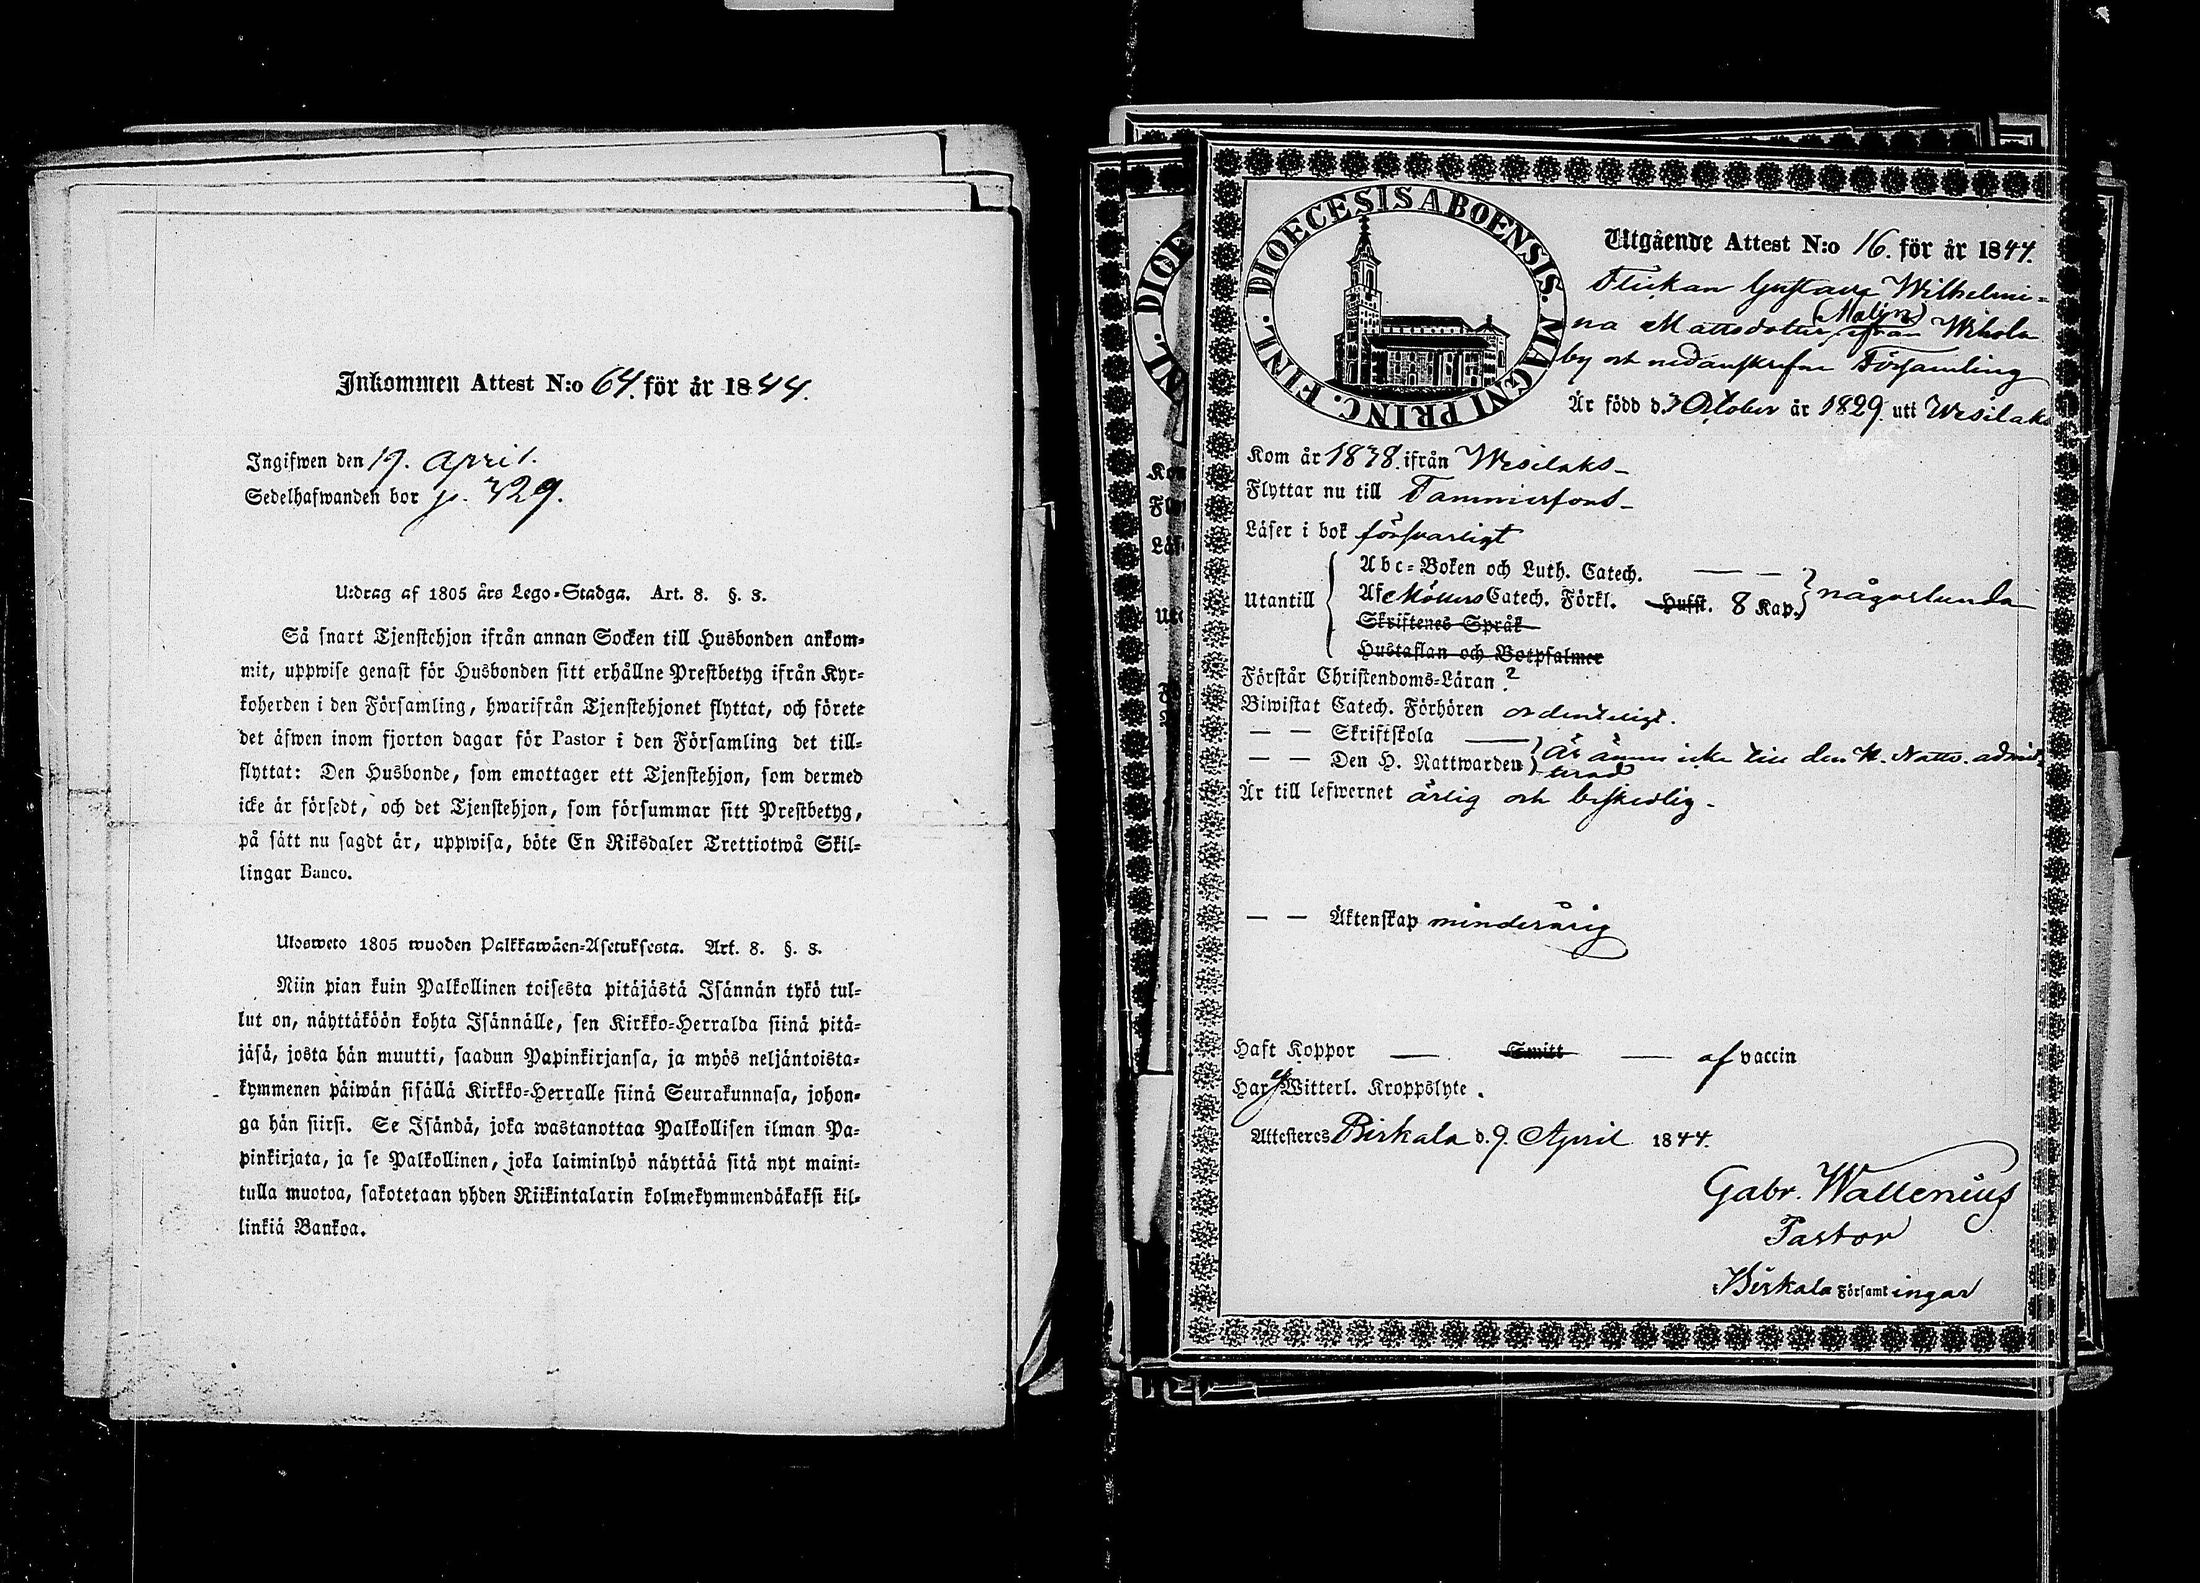 Inkommen Attest N:o 64. för år 1844.
Ingifwen den 19. April.
Sedelhafwanden bor p. 329.
Utdrag af 1805 års Lego-Stadga. Art. 8. §. 3.
Så snart Tjenstehjon ifrån annan Socken till Husbonden ankom-
mit, uppwise genast för Husbonden sitt erhållne Prestbetyg ifrån Kyr-
koherden i den Församling, hwarifrån Tjenstehjonet flyttat, och förete
det äfwen inom fjorton dagar för Pastor i den Församling det till-
flyttat: Den Husbonde, som emottager ett Tjenstehjon, som dermed
icke är försedt, och det Tjenstehjon, som försummar sitt Prestbetyg,
på sätt nu sagdt är, uppwisa, böte En Riksdaler Trettiotwå Skil-
lingar Banco.
Ulosweto 1805 wuoden Palkkawäen-Asetuksesta. Art. 8. §. 3.
Niin pian kuin Palkollinen toisesta pitäjästä Isännän tykö tul-
lut on, näyttäköön kohta Isännälle, sen Kirkko-Herralda siinä pitä-
jäsä, josta hän muutti, saadun Papinkirjansa, ja myös neljäntoista-
kymmenen päiwän sisällä Kirkko-Herralle siinä Seurakunnasa, johon-
ga hän siirsi. Se Isändä, joka wastanottaa Palkollisen ilman Pa-
pinkirjata, ja se Palkollinen, joka laiminlyö näyttää sitä nyt maini-
tulla muotoa, sakotetaan yhden Riikintalarin kolmekymmendäkaksi kil-
linkiä Bankoa.
DIOECESIS ABOENSIS. MAGNI PRINC. FINL.
Utgående Attest N:o 16. för år 1844.
Flickan Gustava Wilhelmi-
na Mattsdotter (Malin) ifrån Wihola
by och nedanskrefne Församling
Är född d. 3 October år 1829. uti Wesilaks
Kom år 1838. ifrån Wesilaks-
Flyttar nu till Tammerfors-
Läser i bok försvarligt
Utantill { Abc-Boken och Luth. Catech. — —
Af Möllers Catech. Förkl. Hufst. 8 Kap. } någorlunda
Skriftenes Språk
Hustaflan och Botpsalmer
Förstår Christendoms-Läran ?
Biwistat Catech. Förhören ordentligt.
— — Skriftskola —
— — Den H. Nattwarden } Är ännu icke till den H. Nattv. admit-
terad
Är till lefwernet ärlig och beskedlig-
— — Äktenskap minderårig
Haft Koppor — Smitt — af vaccin
Har ej Witterl. Kroppslyte.
Attesteres Birkala d. 9. April 1844.
Gabr. Wallenius
Pastor
i Birkala Församlingar